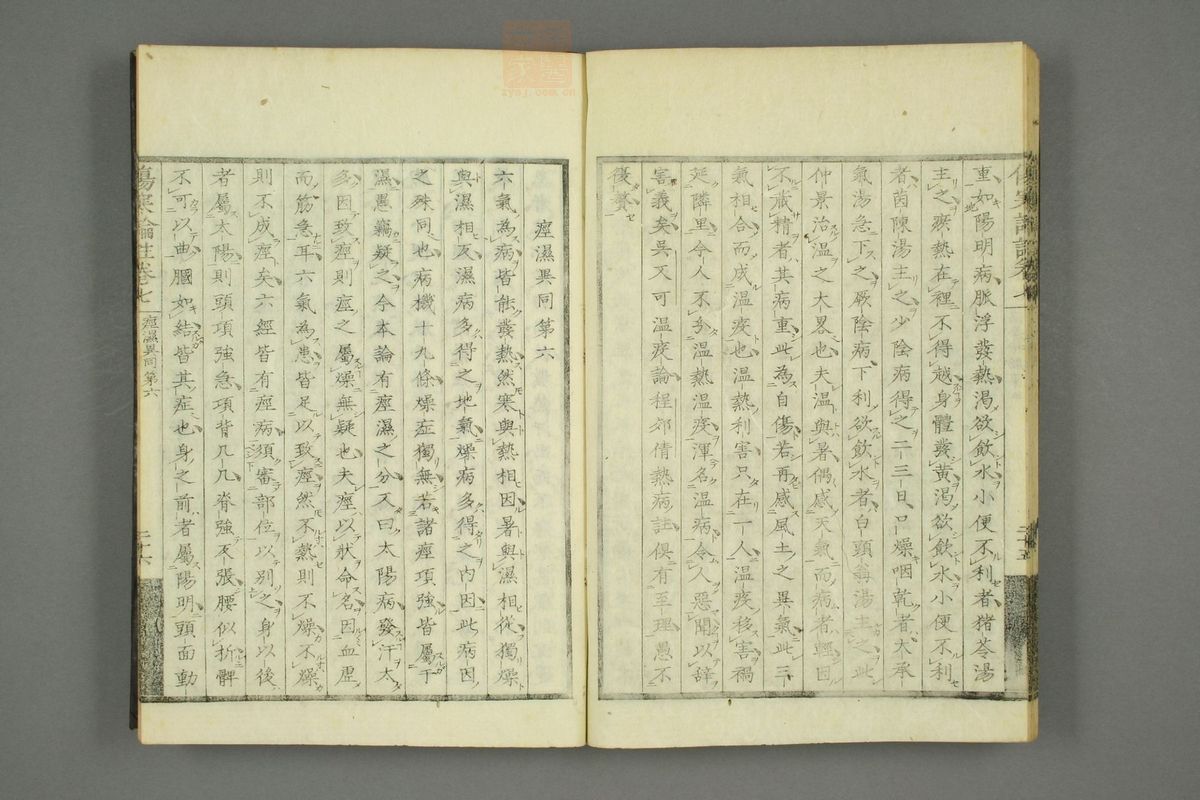 重如陽明病脈浮發熱渴欲飲水小便不利者猪苓湯
主之瘀熱在裡不得越身體發黃渴欲飲水小便不利
者茵陳湯主之少陰病得之二三日口燥咽乾者大承
氣湯急下之厥陰病下利欲飲水者白頭翁湯主之此
仲景治溫之大畧也夫溫與暑偶感天氣而病者輕因
不藏精者其病重此為自傷若再感風土之異氣此三
氣相合而成溫疫也溫熱利害只在一人溫疫移害禍
延隣里今人不分溫熱溫疫渾名溫病令人惡聞以辞
害義矣吳又可溫疫論程郊倩熱病註俱有至理愚不
復贅
痙濕異同第六
六氣為病皆能發熱然寒與熱相因暑與濕相從獨燥
與濕相反濕病多得之地氣燥病多得之內因此病因
之殊同也病機十九條燥症獨無若諸痙項強皆屬于
濕愚竊疑之今本論有痙濕之分又曰太陽病發汗太
多因致痙則痙之屬燥無疑也夫痙以狀命名因血虛
而筋急耳六氣為患皆足以致痙然不熱則不燥不燥
則不成痙矣六經皆有痙病須審部位以別之身以後
者屬太陽則頭項強急項背几几脊強反張腰似折髀
不可以曲膕如結皆其症也身之前者屬陽明頭面動
傷寒論註卷七 痙濕異同第六 二十六
二十五
zysj.com.cn